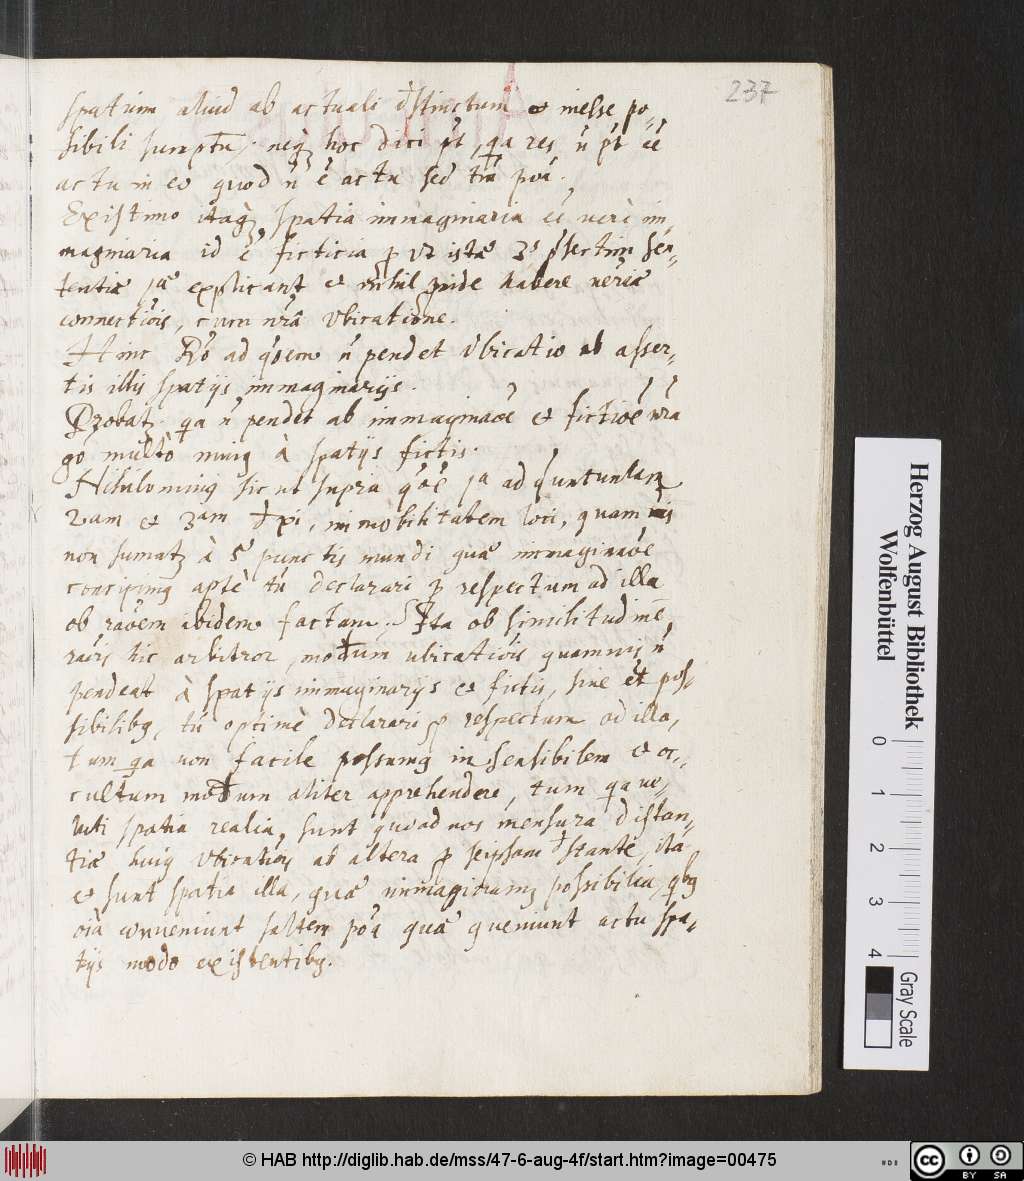 237
spatium aliud ab actuali dstinctum et inesse po-
sibili sumptū; neq3 hoc dici pt, qa res n̄ pt cē
actu in eo quod n̄ ē actu sed tm̄ poā.
Existimo itaq3 spatia immaginaria eē verè im-
maginaria id ē ficticia p vt istæ 3s sen-
tentiæ jā explicant et nihil inde habere
connectiōis, cum nrā Vbicatione.
Hinc Rō ad n̄ pendet Vbicatio ab asser-
tis illis spatijs immaginarijs.
Probat2 qa n̄ pendet ab immaginaōē et fictiōē nrā
go multò minq à spatijs fictis.
Nihilominq sic ut supra jā ad
2am et 3am immobilitatem loci, quamuis
non sumat2 à 5 punctis mundi quæ immaginaōē
concipimq aptè tn̄ declarari p respectum ad illa
ob raōem ibidem factam. Ita ob similitudinē
raōis hic arbitror, modum ubicatiōis quamuis n̄
pendeat à spatijs immaginarijs et fictis, siue et pos-
sibilibq, tn̄ optimè declarari p respectum ad illa,
tum qa non facile possumq insensibilem et oc-
cultum modum aliter apprehendere, tum qa ue-
luti spatia realia, sunt quoad nos mensura distan-
tiæ huiq Vbicatiōis ab altera p seipsam dstante, ita
et sunt spatia illa, quæ immaginamq possibilia, qbq
oīā conueniunt saltem poā quæ queniunt actu spa-
tijs modo existentibq.
Herzog August Bibliothek
Wolfenbüttel
0 1 2 3 4
Gray Scale
© HAB http://diglib.hab.de/mss/47-6-aug-4f/start.htm?image=00475
cc BY SA